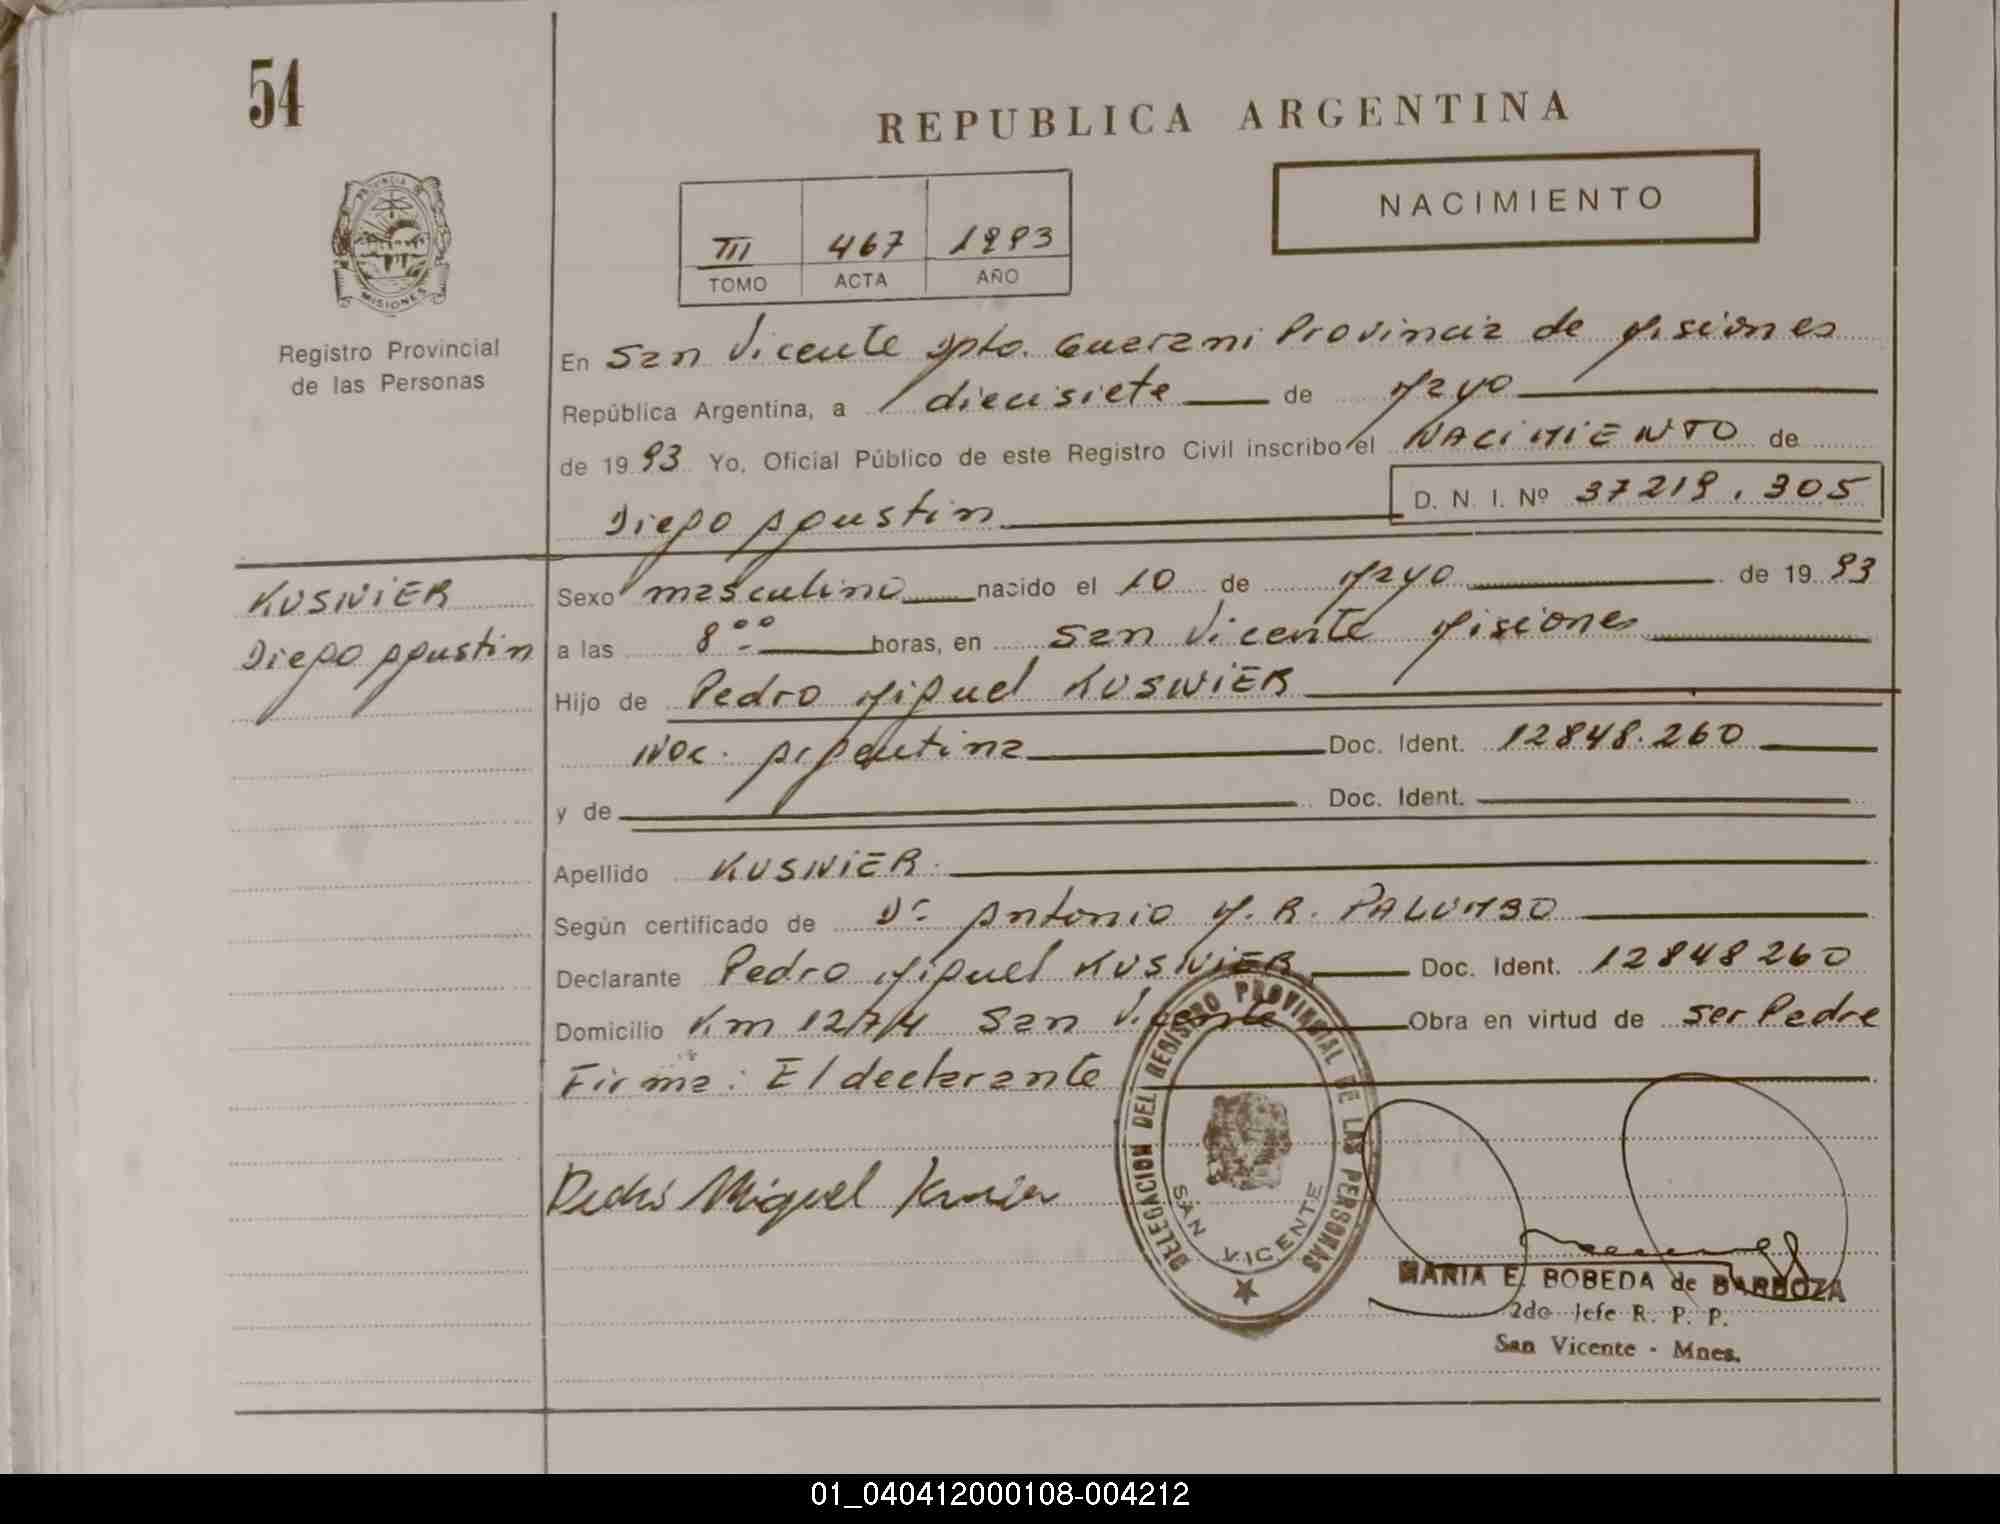 54
REPUBLICA ARGENTINA
PROVINCIA DE
MISIONES
Registro Provincial
de las Personas
III 467 1993
TOMO ACTA AÑO
NACIMIENTO
En San Vicente Dpto. Guarani Provincia de Misiones
República Argentina, a diecisiete de Mayo
de 1993 Yo, Oficial Público de este Registro Civil inscribo el NACIMIENTO de
Diego Agustin D. N. I. Nº 37219.305
KUSNiER
Diego Agustin
Sexo masculino nacido el 10 de Mayo de 1993
a las 8 °° horas, en San Vicente Misiones
Hijo de Pedro Miguel KUSNiER
Nac. Argentina Doc. Ident. 12848.260
y de Doc. Ident.
Apellido KUSNiER.
Según certificado de Dr. Antonio M. R. PALUMBO
Declarante Pedro Miguel KUSNiER Doc. Ident. 12848260
Domicilio Km 1274 San Vicente Obra en virtud de ser Padre
Firma: El declarante
Pedro Miguel Kusnier
DELEGACION DEL REGISTRO PROVINCIAL DE LAS PERSONAS
SAN VICENTE
MARIA E. BOBEDA de BARBOZA
2do Jefe R. P. P.
San Vicente - Mnes.
01_040412000108-004212